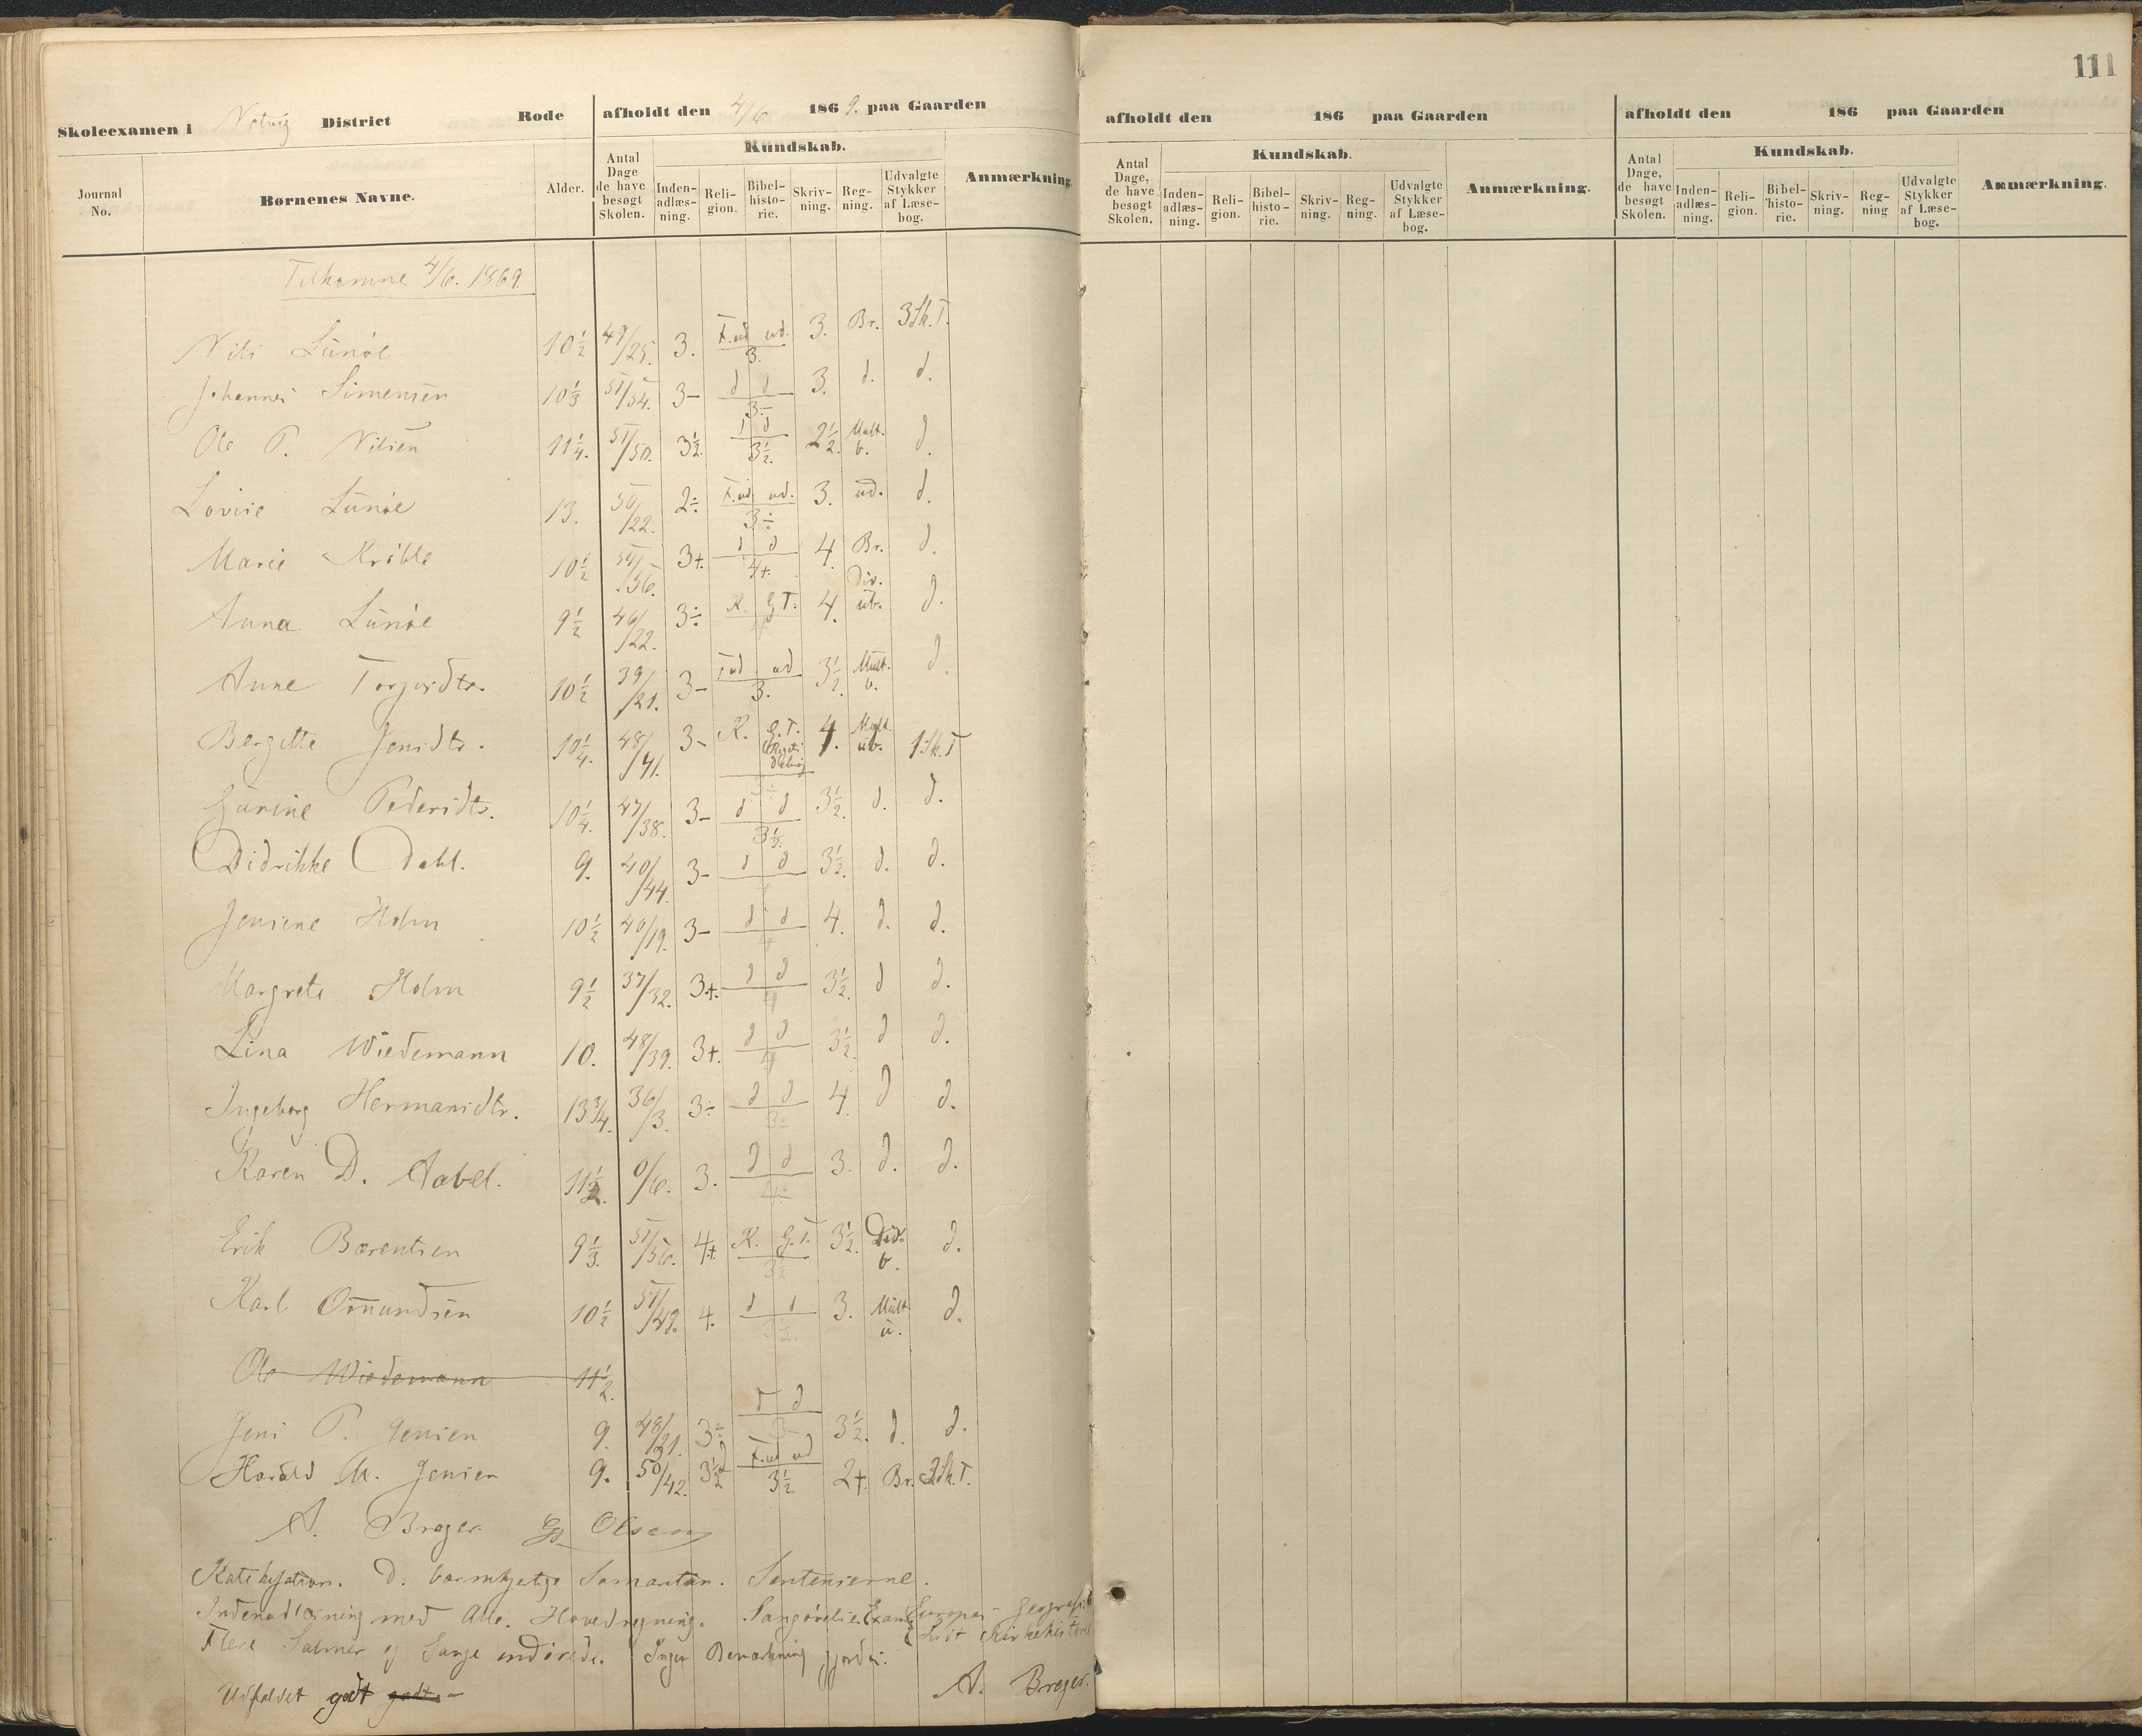 111
Skoleexamen i District Rode afholdt den 4/6 1869. paa Gaarden
Journal No. Børnenes Navne. Alder. Antal Dage de have besøgt Skolen. Kundskab. Inden-adlæs-ning. Reli-gion. Bibel-histo-rie. Skriv-ning. Reg-ning. Udvalgte Stykker af Læse-bog. Anmærkning.
4/6. 1869
Nils Lunöe 10½ 49/25. 3. F.ud ud. 3. 3. Br. 3 Sk.T.
Johannes Simensen 10⅓ 51/54. 3- d d 3.- 3. d. d.
Ole P. Nilsen 11¼. 51/50. 3½ d d 3½. 2½. Mult. b. d.
Lovise Lunöe 13. 50/22. 2÷ F.ud ud. 3÷ 3. ud. d.
Marie 10½ 54/56. 3+. d d 4+. 4. Br. d.
Anna Lunöe 9½ 46/22. 3÷ K. G.T. 4 4. Div. ub. d.
Anne Torjusdtr. 10½ 39/21. 3- F.ud ud 3. 3½. Mult. b. d.
Bergitte Jensdtr. 10¼. 48/41. 3- K. G.T. 4. Mult. ub. 1 Sk.T
Gunine Pedersdtr. 10¼. 47/38. 3- d d 3½. 3½. d. d.
Didrikke Dahl. 9. 40/44. 3- d d 3½. d. d.
Jensine Holm 10½ 40/19. 3- d d 4 4. d. d.
Margrete Holm 9½ 37/32. 3+. d d 4 3½. d d.
Lina Wiedemann 10. 48/39. 3+. d d 4 3½. d d.
Ingeborg Hermansdtr. 13¾. 36/3. 3÷ d d 3÷ 4. d d.
Karen D. Aabel. 11½. 0/6. 3. d d 4÷ 3. d. d.
Erik Bærentsen 9⅓. 51/56. 4+. K. G.T. 3½ 3½. Div. b. d.
Karl Osmundsen 10½ 51/49. 4. d d 3½. 3. Mult u. d.
Ole Wiedemann 11½.
Jens P. Jensen 9. 48/21. 3÷ d d 3- 3½. d. d.
Harald M. Jensen 9. 50/42. 3½ F.ud ud 3½ 2+. Br. 2 Sk.T.
A. Brager. Olsen
D. barmhjertige Samaritan. Sentenserne.
Indenadlæsning med Alle. Hovedregning. Sangøvelse. Europas Geografi
Lidt Kirkehistorie
Flere Salmer og Sange Ingen Bemærkning gjordes.
Udfaldet godt godt. -
A. Brager.
afholdt den 186 paa Gaarden
Antal Dage, de have besøgt Skolen. Kundskab. Inden-adlæs-ning. Reli-gion. Bibel-histo-rie. Skriv-ning. Reg-ning. Udvalgte Stykker af Læse-bog. Anmærkning.
afholdt den 186 paa Gaarden
Antal Dage, de have besøgt Skolen. Kundskab. Inden-adlæs-ning. Reli-gion. Bibel-histo-rie. Skriv-ning. Reg-ning Udvalgte Stykker af Læse-bog. Anmærkning.